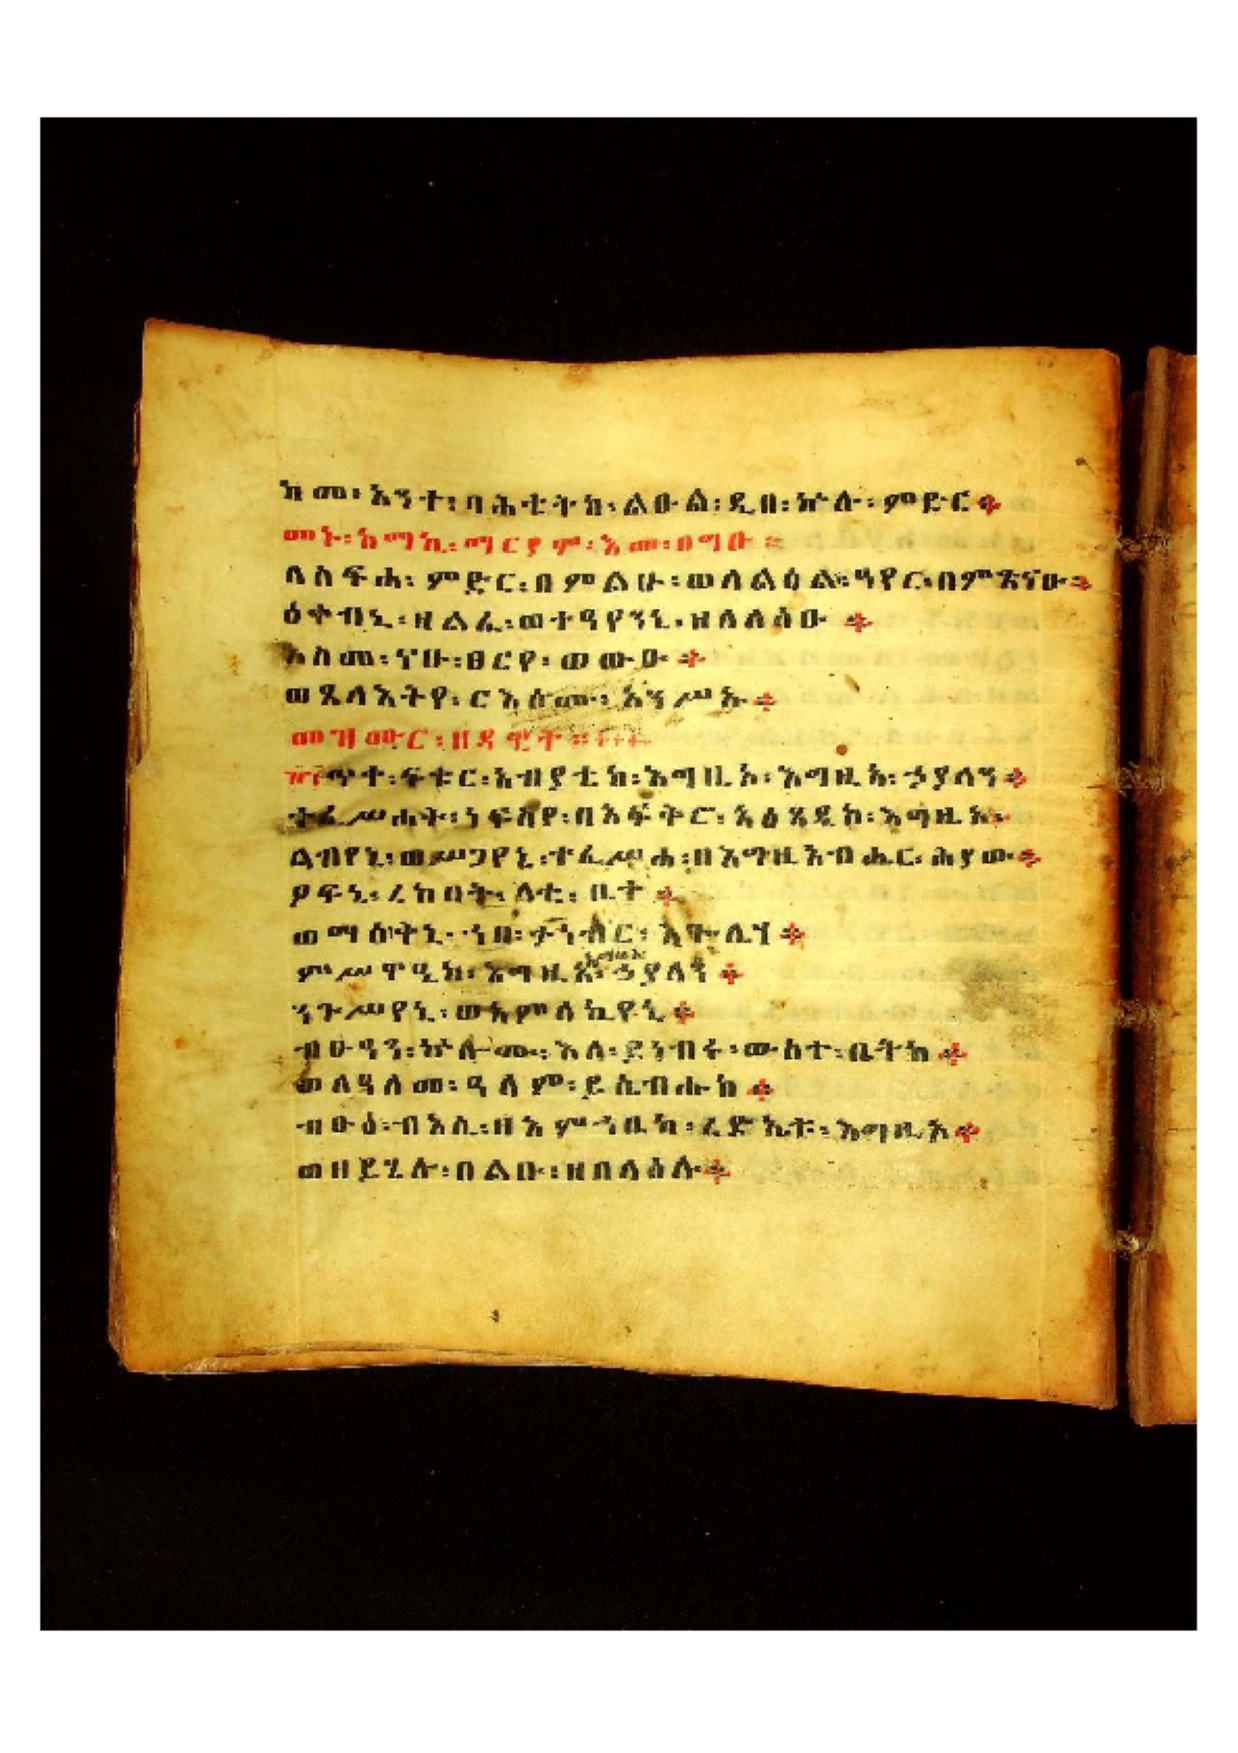 ከመ፡ አንተ፡ ባሕቲትከ፡ ልዑል፡ ዲበ፡ ኵሉ፡ ምድር፨
ማርያም፡ እመ፡
ለስፍሐ፡ ምድር፡ በምልሁ፡ ወለልዕል፡ ዓየር፡
ዕቀብኒ፡ ዘልፈ፡ ወተዓየንኒ፡ ዘለለዕዑ፨
እስመ፡ ናሁ፡ ፀርየ፡ ወውዑ፨
ወጼላእትየ፡ ርእሰሙ፡ አንሥኡ፨
መዝሙር፡ ዘዳዊት፨
ፍቁር፡ አብያቲከ፡ እግዚኦ፡ እግዚአ፡ ኃያላን፨
ተፈሥሐት፡ ነፍስየ፡ በአፍቅሮ፡ አዕጻዲከ፡ እግዚኦ፨
ልብየኒ፡ ወሥጋየኒ፡ ተፈሥሐ፡ በእግዚአብሔር፡ ሕያው፨
ዖፍኒ፡ ረከበት፡ ላቲ፡ ቤተ፨
ወማዕነቅኒ፡ ኀበ፡ ታነብር፡ እጐሊሃ፨
ምሥዋዒከ፡ እግዚአ፡ ኃያላን፨
ንጉሥየኒ፡ ወአምላኪየኒ፨
ብፁዓን፡ ኵሎሙ፡ እለ፡ ይነብሩ፡ ውስተ፡ ቤትከ፨
ወለዓለመ፡ ዓለም፡ ይሴብሑከ፨
ብፁዕ፡ ብእሲ፡ ዘእምኀቤከ፡ ረድኤቱ፡ እግዚኦ፨
ወዘይሄሉ፡ በልቡ፡ ዘበላዕሉ፨